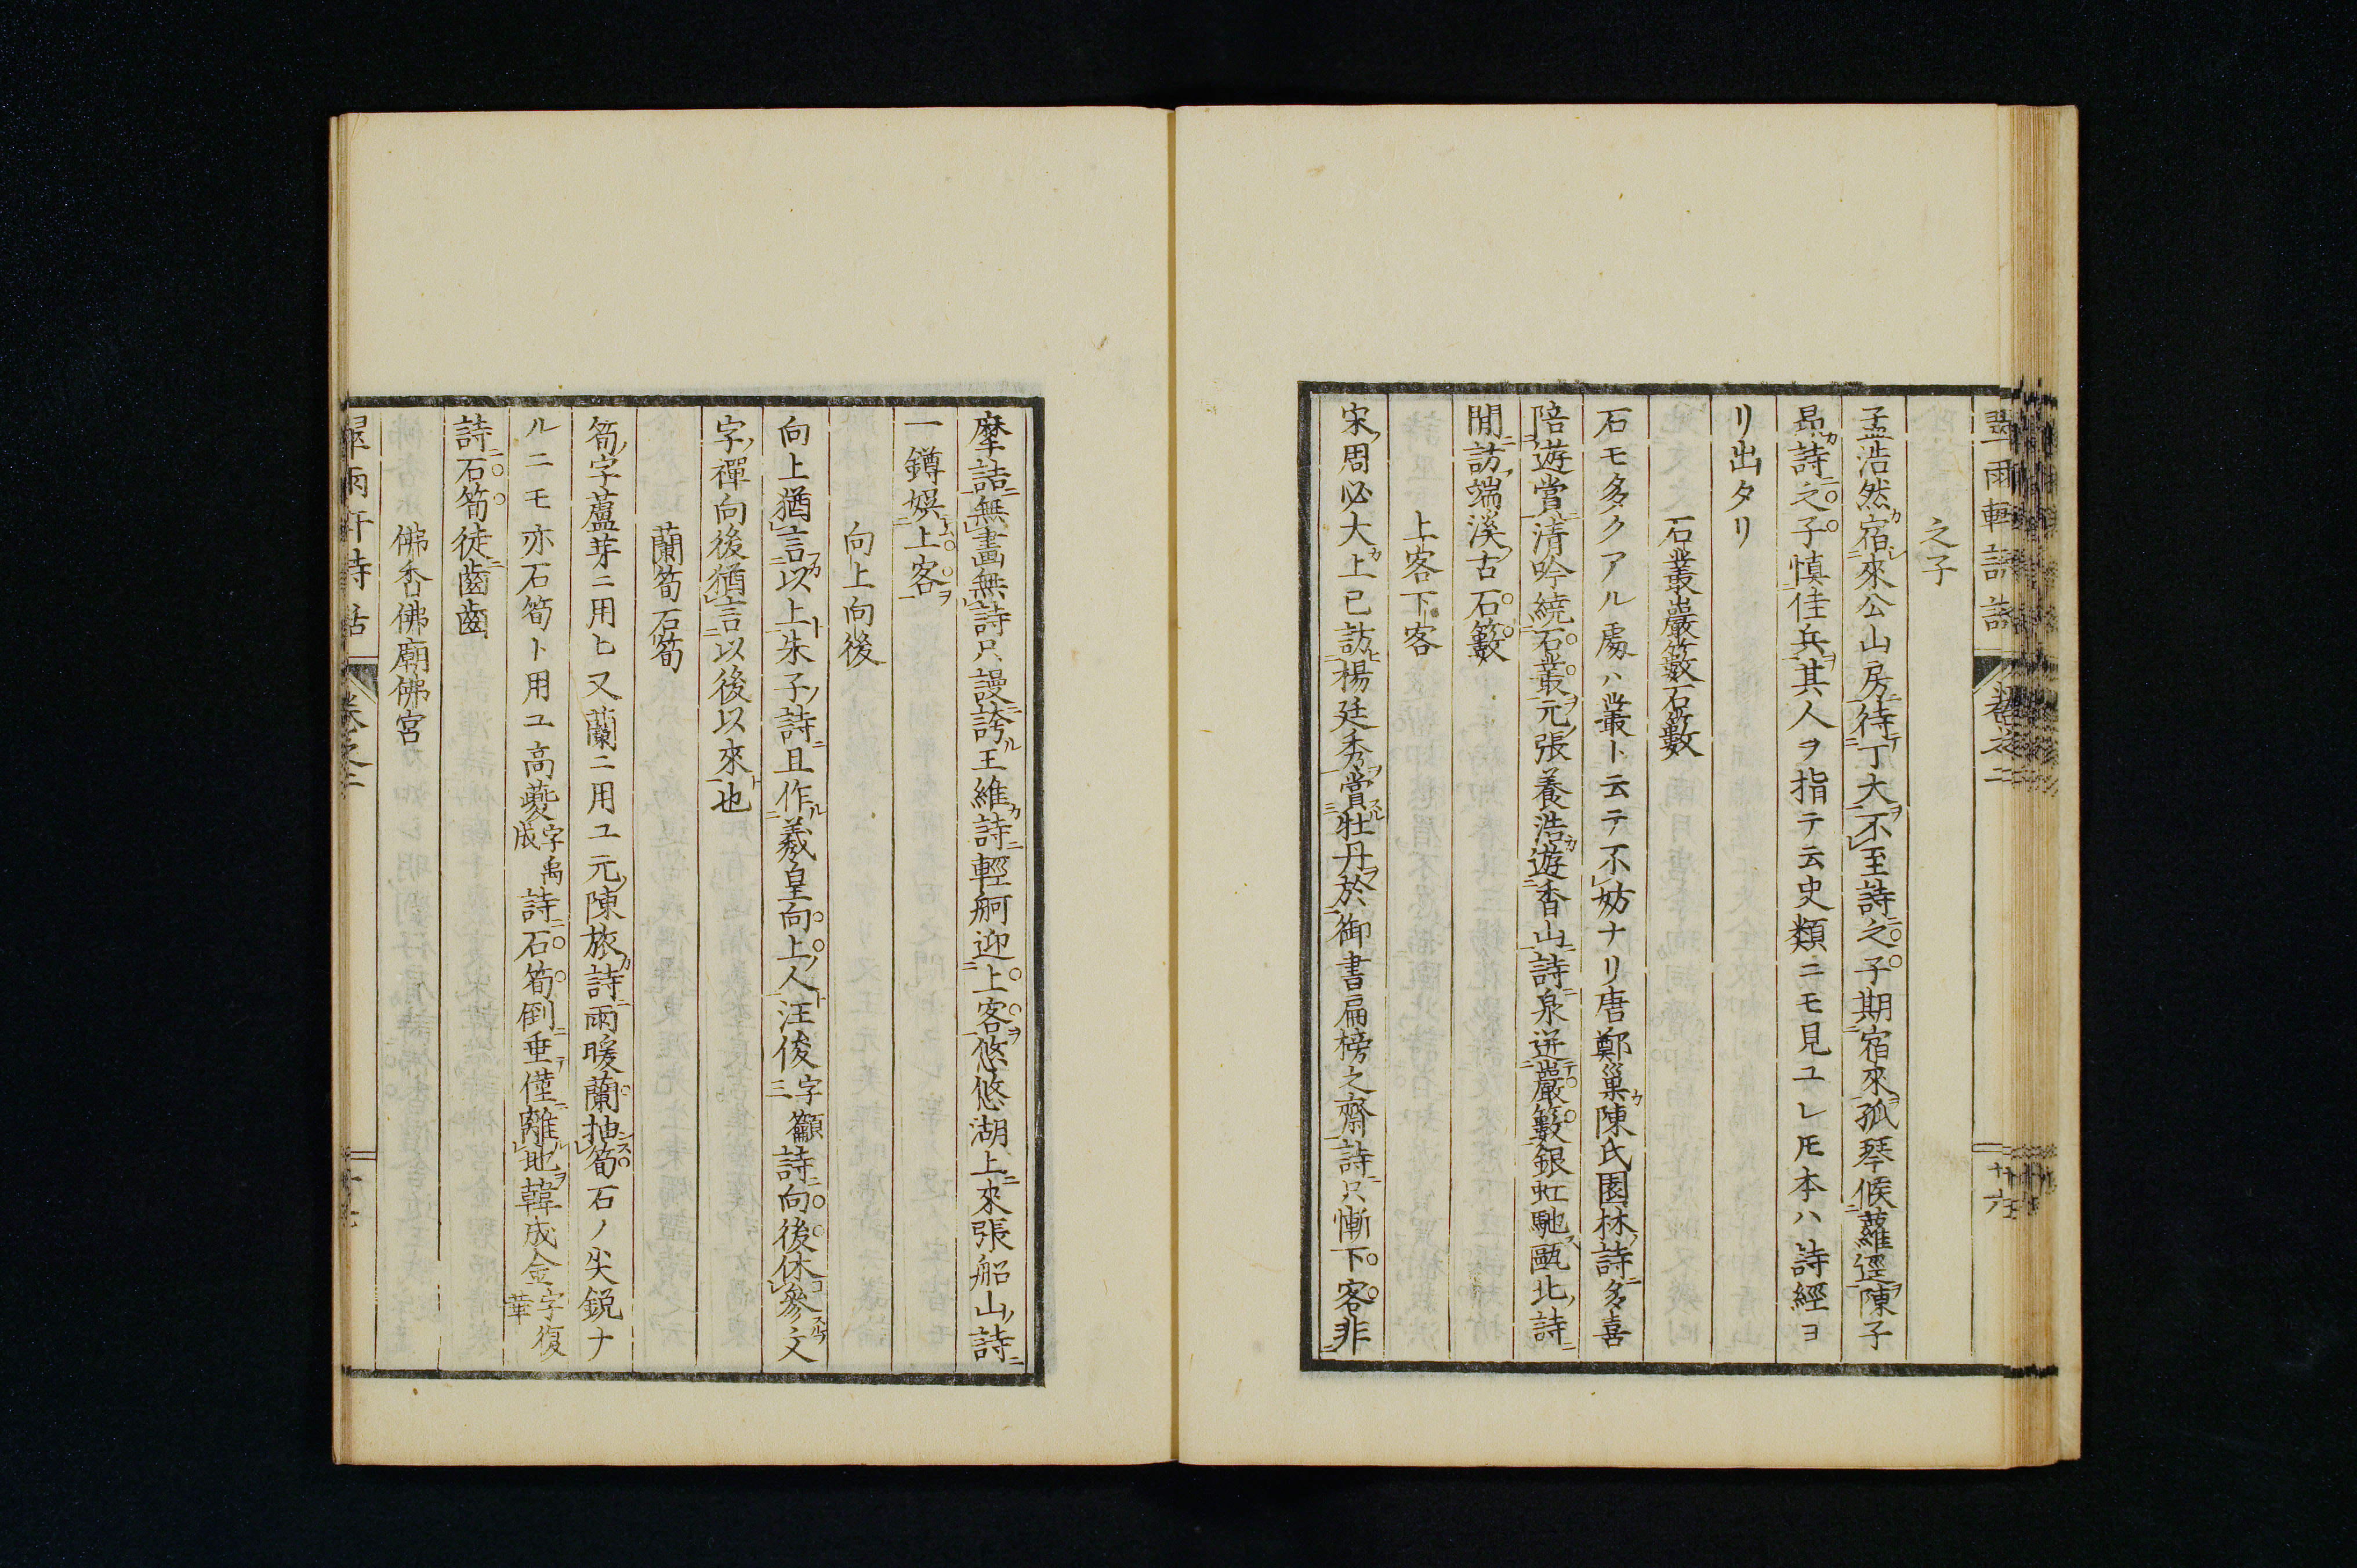 翠雨軒詩話 卷之二 十六
之子
孟浩然宿來公山房待丁大不至詩之子期宿來孤琴候蘿逕陳子
昂詩之子愼佳兵其人ヲ指テ云史類ニモ見ユレ𪜈本ハ詩經ヨ
リ出タリ
石叢巖籔石籔
石モ多クアル處ハ叢ト云テ不妨ナリ唐鄭巢陳氏園林詩多喜
陪遊賞清吟繞石叢元張養浩遊香山詩泉迸巖籔銀虹馳甌北詩
閒訪端溪古石籔
上客下客
宋周必大上已訪楊廷秀賞牡丹於御書扁榜之齋詩只慚下客非
摩詰無畫無詩只謾誇王維詩輕舸迎上客悠悠湖上來張船山詩
一鐏娯上客
向上向後
向上猶言以上朱子詩且作羲皇向上人汪俊字籲三詩向後休參文
字禪向後猶言以後以來也
蘭筍石筍
筍字蘆芽ニ用ヒ又蘭ニ用ユ元陳旅詩雨暖蘭抽筍石ノ尖鋭ナ
ルニモ亦石筍ト用ユ高夔字禹成詩石筍倒垂僅離地韓成金字復華
詩石筍徒齒齒
佛香佛廟佛宮
翠雨軒詩話 卷之二